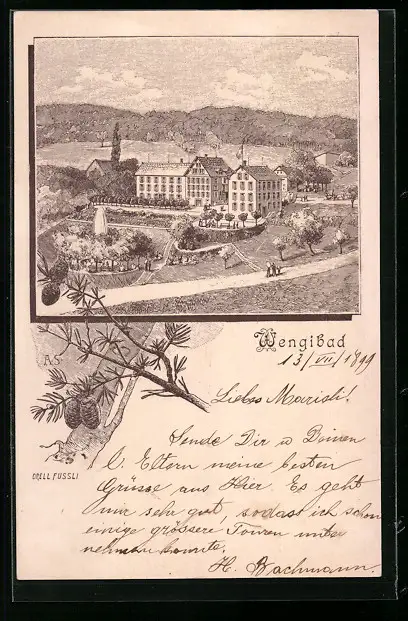 Wengibad
13/VII/1899
AS
Liebes Marieli!
ORELL FÜSSLI
Sende Dir u Deinen
l. Eltern meine besten
Grüsse aus Hier. Es geht
mir sehr gut, sodass ich schon
einige grössere Touren unter
nehmen konnte.
H. Bachmann.